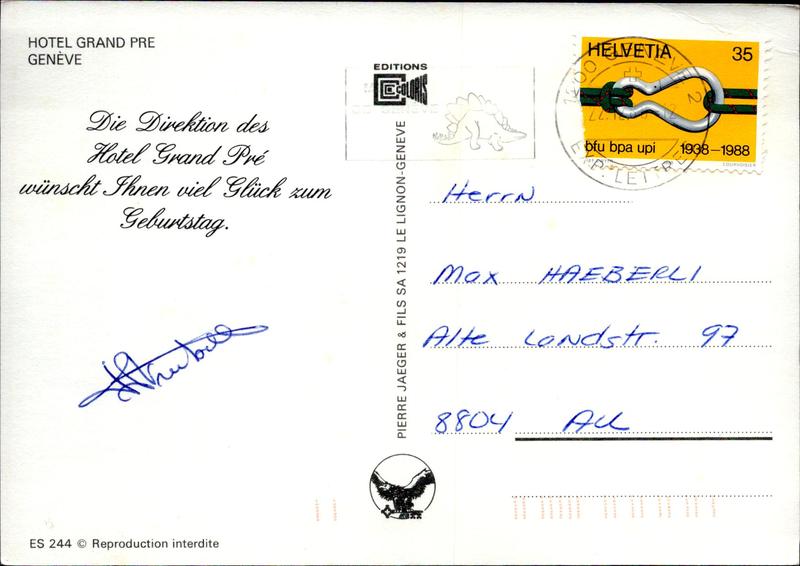 HOTEL GRAND PRE
GENÈVE
Die Direktion des
Hotel Grand Pré
wünscht Ihnen viel Glück zum
Geburtstag.
EDITIONS
COLORIS
PIERRE JAEGER & FILS SA 1219 LE LIGNON-GENEVE
HELVETIA 35
bfu bpa upi 1938–1988
EXP. LETTRES
Herrn
Max HAEBERLI
Alte Landstr. 97
8804 AU
ES 244 © Reproduction interdite